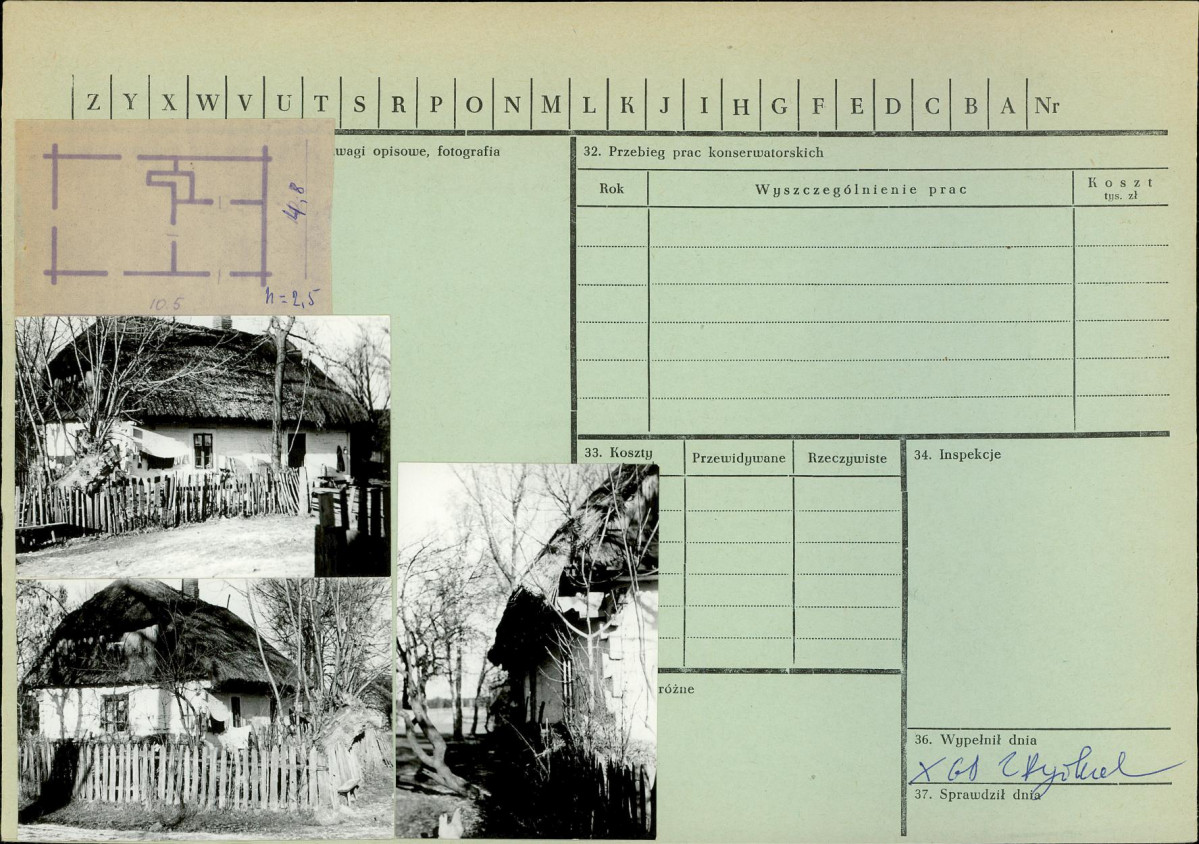 Z Y X W V U T S R P O N M L K J I H G F E D C B A Nr
wagi opisowe, fotografia
4,8
10.5
h=2,5
32. Przebieg prac konserwatorskich
Rok
Wyszczególnienie prac
Koszt
tys. zł
33. Koszty
Przewidywane
Rzeczywiste
34. Inspekcje
różne
36. Wypełnił dnia
37. Sprawdził dnia